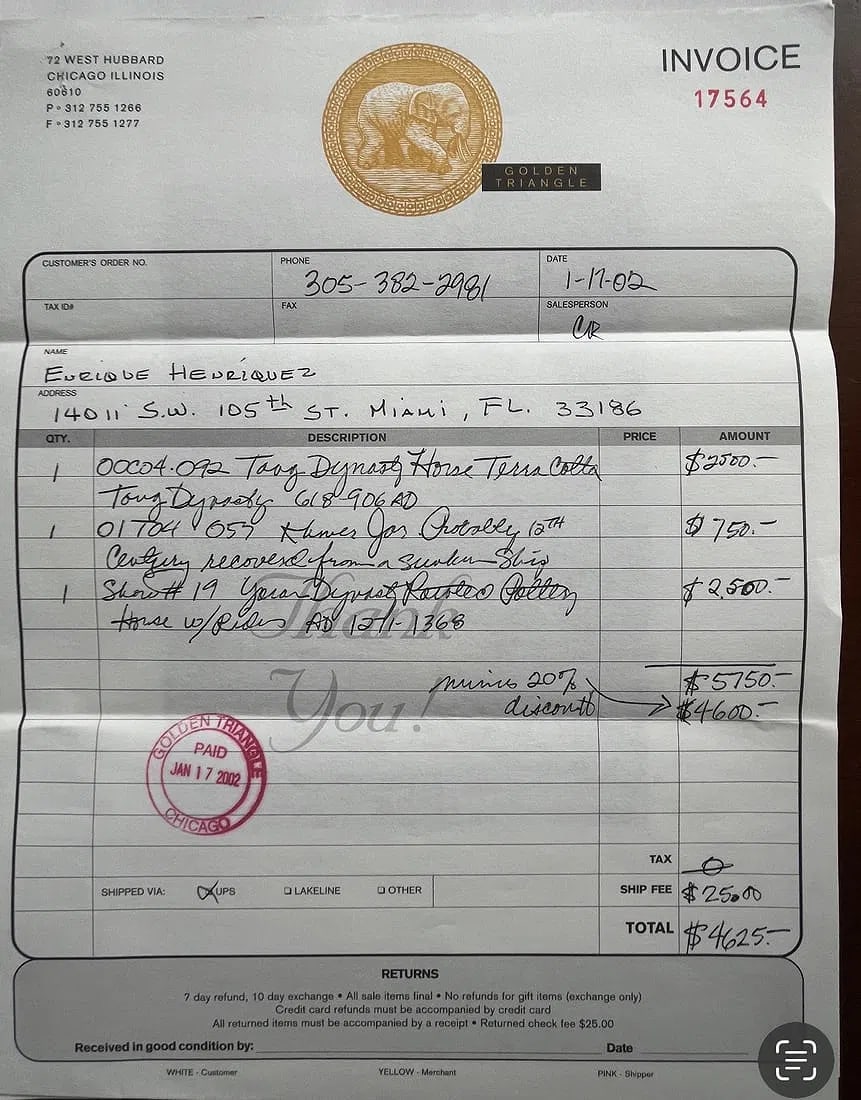 72 WEST HUBBARD
CHICAGO ILLINOIS
60610
P • 312 755 1266
F • 312 755 1277
GOLDEN
TRIANGLE
INVOICE
17564
CUSTOMER'S ORDER NO.
PHONE
305-382-2981
DATE
1-17-02
TAX ID#
FAX
SALESPERSON
CR
NAME
ENRIQUE HENRÍQUEZ
ADDRESS
14011 S.W. 105th ST. MIAMI, FL. 33186
QTY. DESCRIPTION PRICE AMOUNT
1 00C04.092 Tang Dynasty Horse Terra Cotta $2500.-
Tang Dynasty 618-906 AD
1 01704 057 Khmer Jar Probably 12TH $750.-
Century recovered from a sunken Ship
1 Show# 19 Yuan Dynasty Pottery $2,500.-
Horse w/Rider AD 1271-1368
Thank
You!
$5750.-
minus 20%
discount $4600.-
GOLDEN TRIANGLE
PAID
JAN 17 2002
CHICAGO
TAX 0
SHIPPED VIA: UPS LAKELINE OTHER
SHIP FEE $25.00
TOTAL $4625.-
RETURNS
7 day refund, 10 day exchange • All sale items final • No refunds for gift items (exchange only)
Credit card refunds must be accompanied by credit card
All returned items must be accompanied by a receipt • Returned check fee $25.00
Received in good condition by: Date
WHITE - Customer YELLOW - Merchant PINK - Shipper